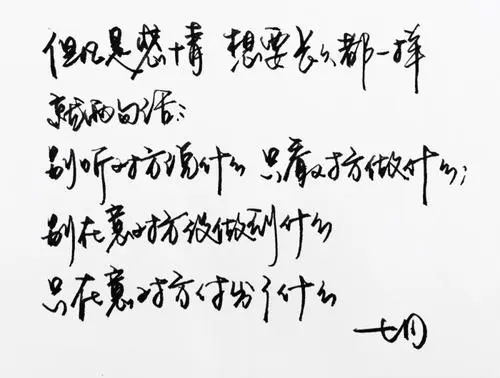 但凡是感情 想要长久都一样
就两句话：
别听对方说什么 只看对方做什么；
别在意对方没做到什么
只在意对方付出了什么
七月